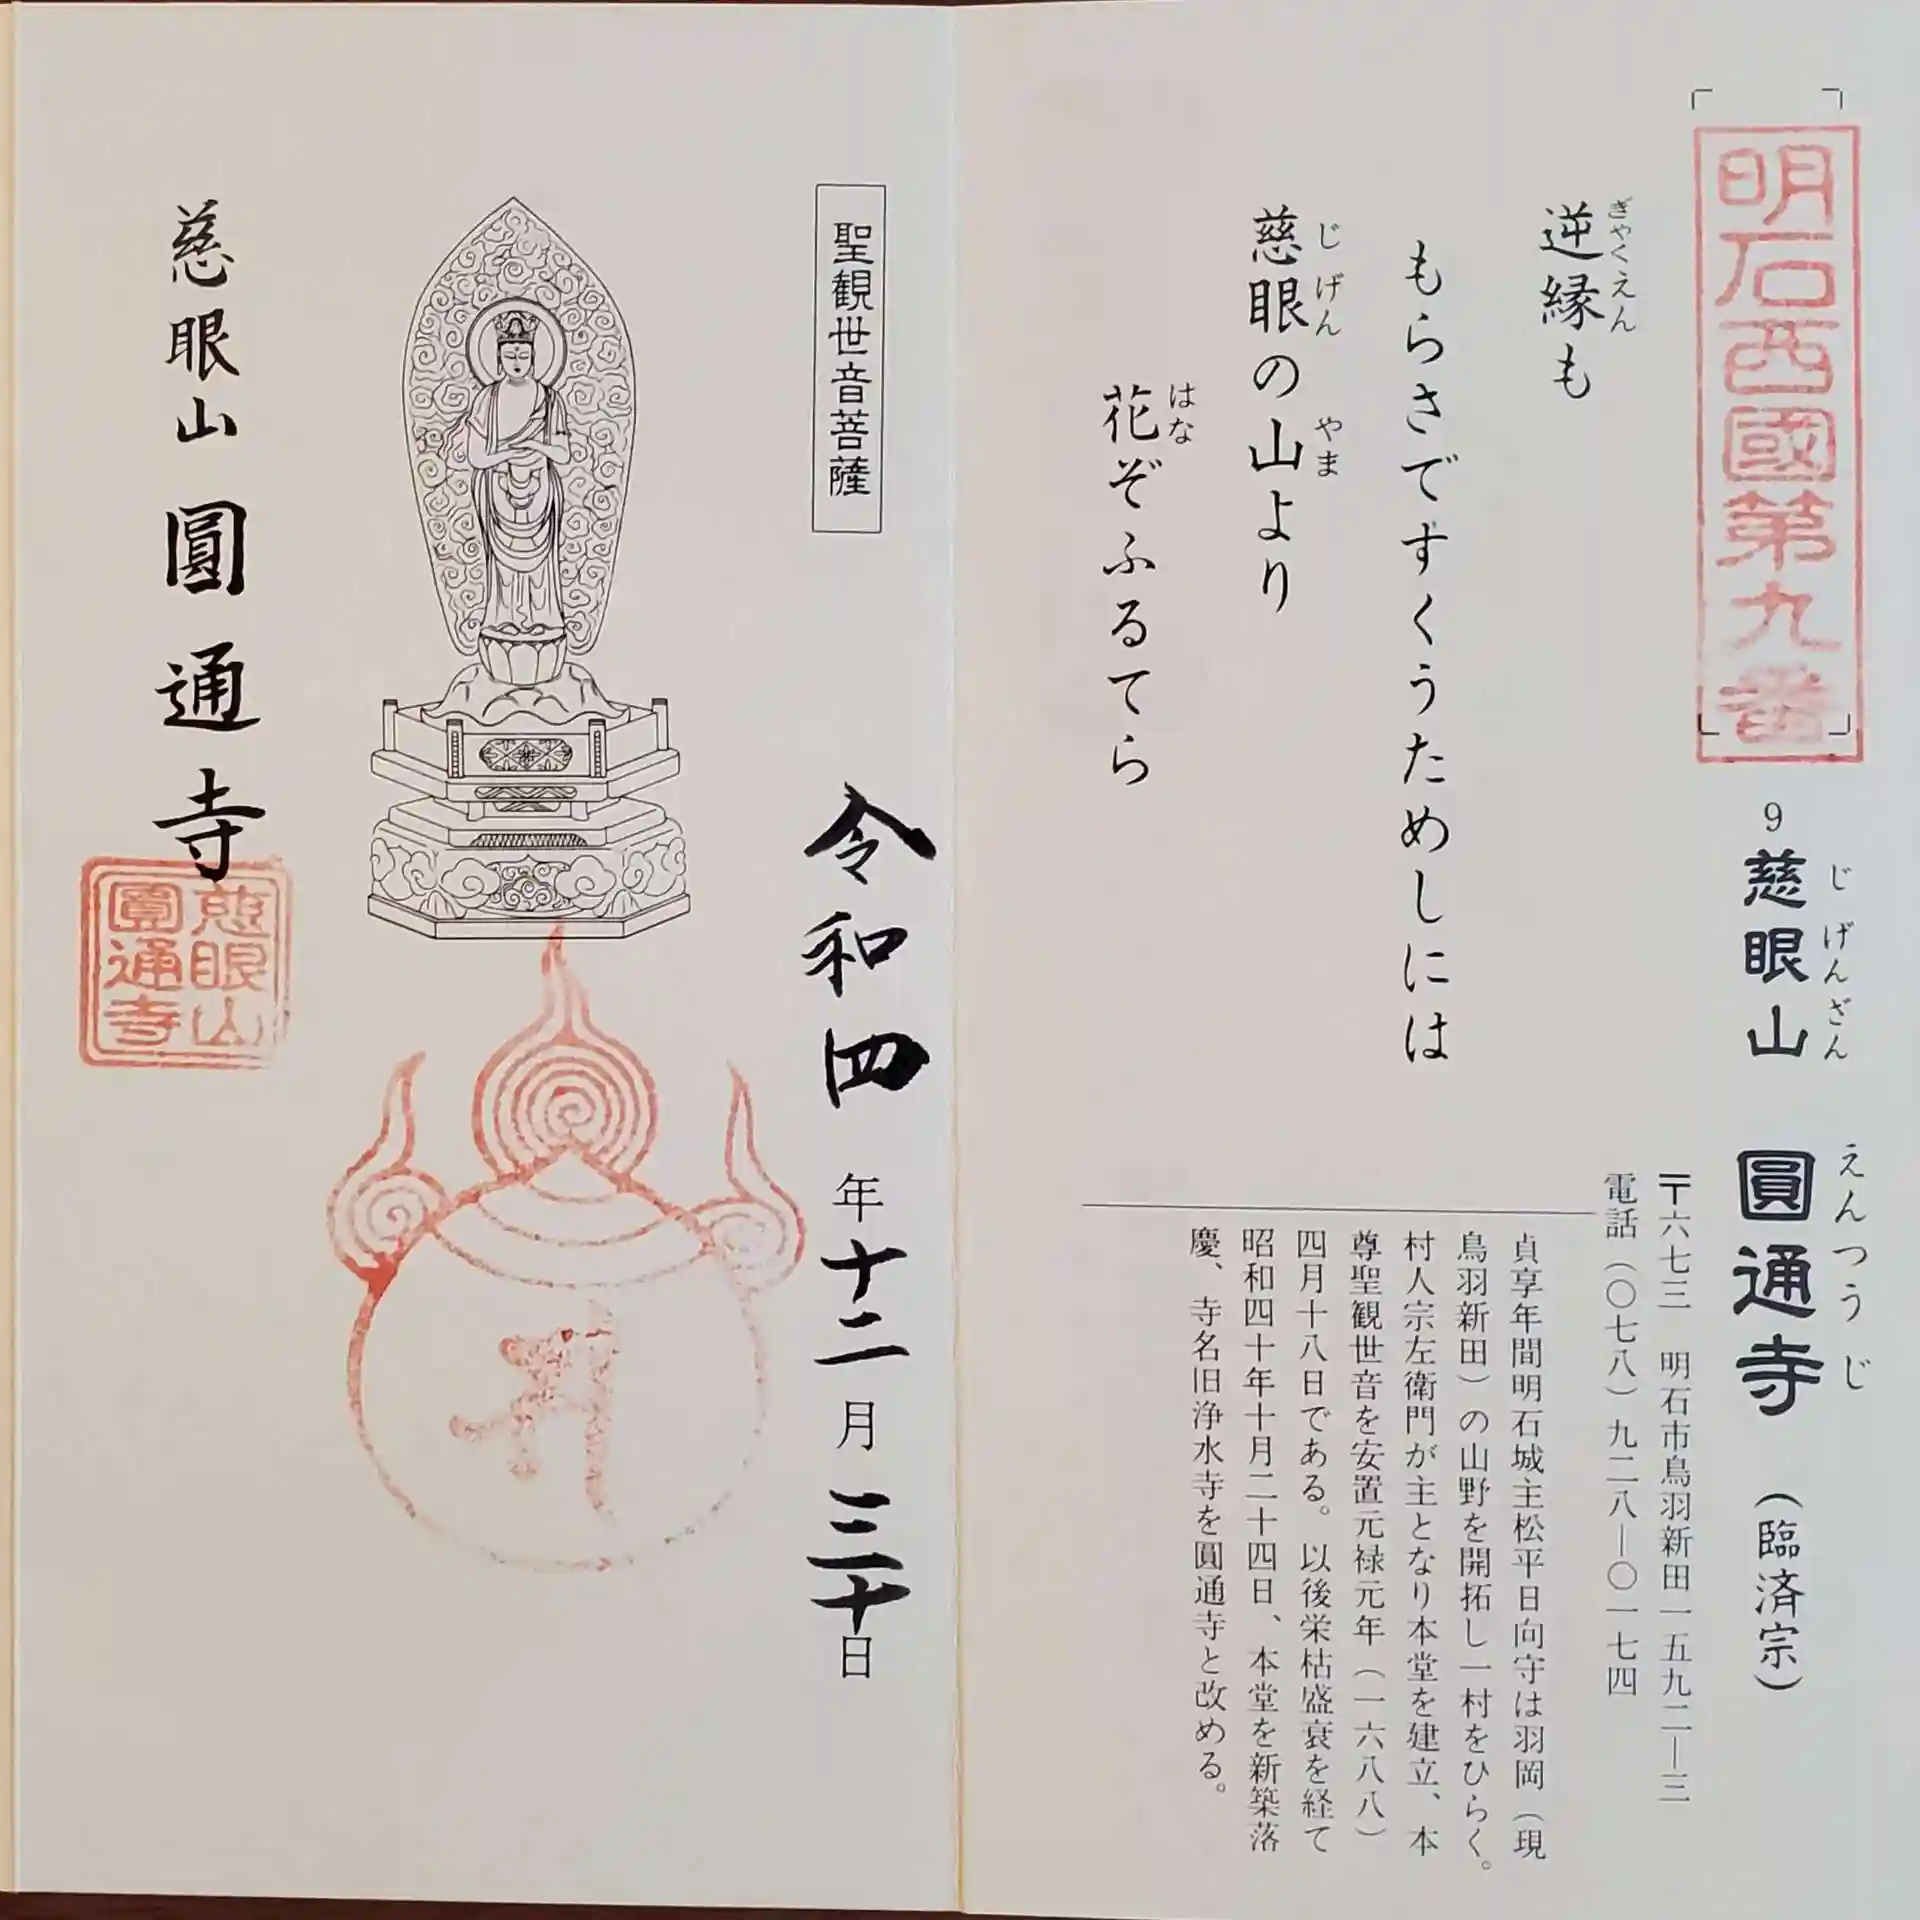 明石西國第九番
9 慈眼山 圓通寺 （臨済宗）
じげんざん えんつうじ
〒六七三 明石市鳥羽新田一五九二―三
電話（〇七八）九二八―〇一七四
逆縁も
ぎゃくえん
もらさですくうためしには
慈眼の山より
じげん やま
花ぞふるてら
はな
貞享年間明石城主松平日向守は羽岡（現
鳥羽新田）の山野を開拓し一村をひらく。
村人宗左衛門が主となり本堂を建立、本
尊聖観世音を安置元禄元年（一六八八）
四月十八日である。以後栄枯盛衰を経て
昭和四十年十月二十四日、本堂を新築落
慶、寺名旧浄水寺を圓通寺と改める。
聖観世音菩薩
令和四年十二月三十日
慈眼山 圓通寺
慈眼山
圓通寺